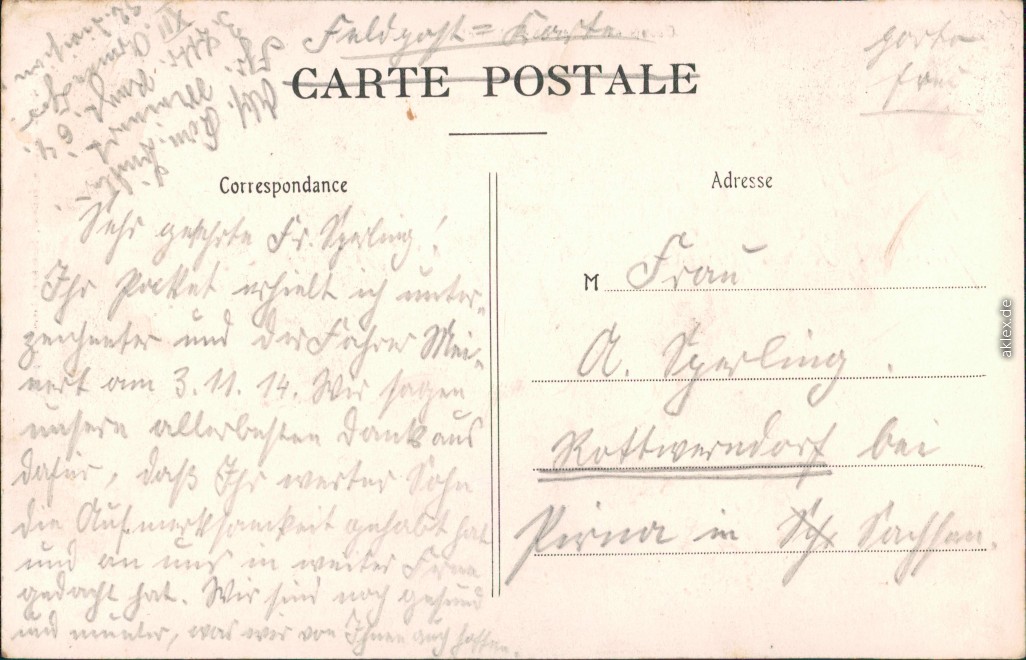 Feldpost = Karte
porto
frei
CARTE POSTALE
Correspondance
Sehr geehrte Fr. Sperling!
Ihr Packet erhielt ich unter-
zeichneter und der Fahrer Mei-
nert am 3.11.14. Wir sagen
unsern allerbesten Dank aus
dafür, daß Ihr werter Sohn
die Aufmerksamkeit gehabt hat
und an uns in weiter Ferne
gedacht hat. Wir sind noch gesund
und munter, was wir von Ihnen auch hoffen.
Adresse
M Frau
A. Sperling.
Rottwerndorf bei
Pirna in Sachsen.
aklex.de